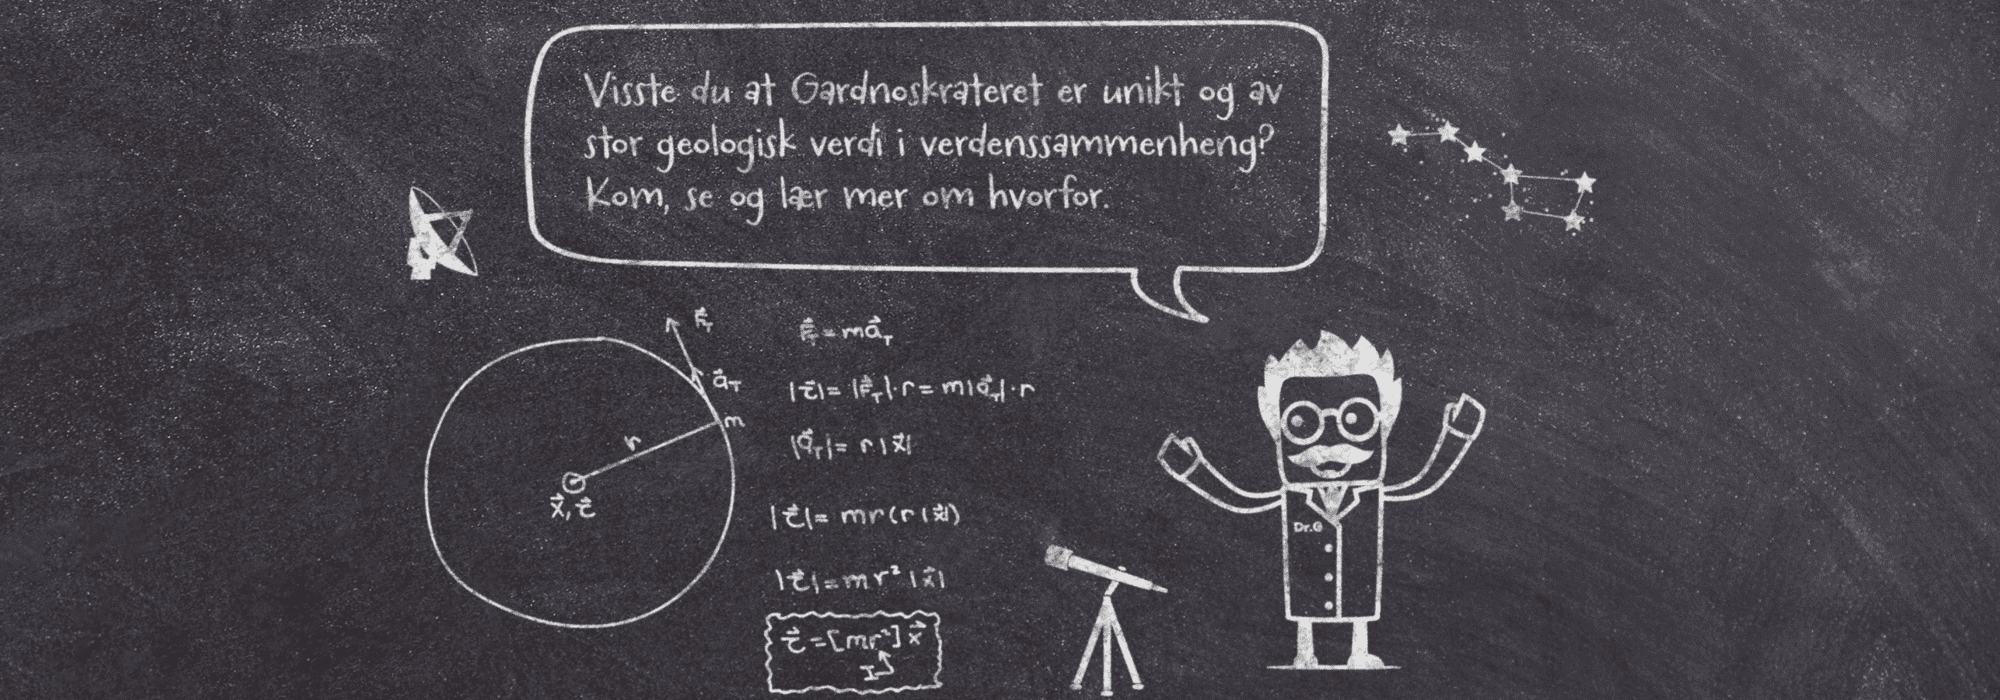 Visste du at Gardnoskrateret er unikt og av
stor geologisk verdi i verdenssammenheng?
Kom, se og lær mer om hvorfor.
F⃗_T
a⃗_T
m
r
x⃗, τ⃗
F⃗ = ma⃗_T
|τ⃗| = |F⃗_T|·r = m|a⃗_T|·r
|a⃗_T| = r|x⃗|
|τ⃗| = mr(r|x⃗|)
|τ⃗| = mr²|x⃗|
τ⃗ = [mr²]x⃗
I
Dr.G